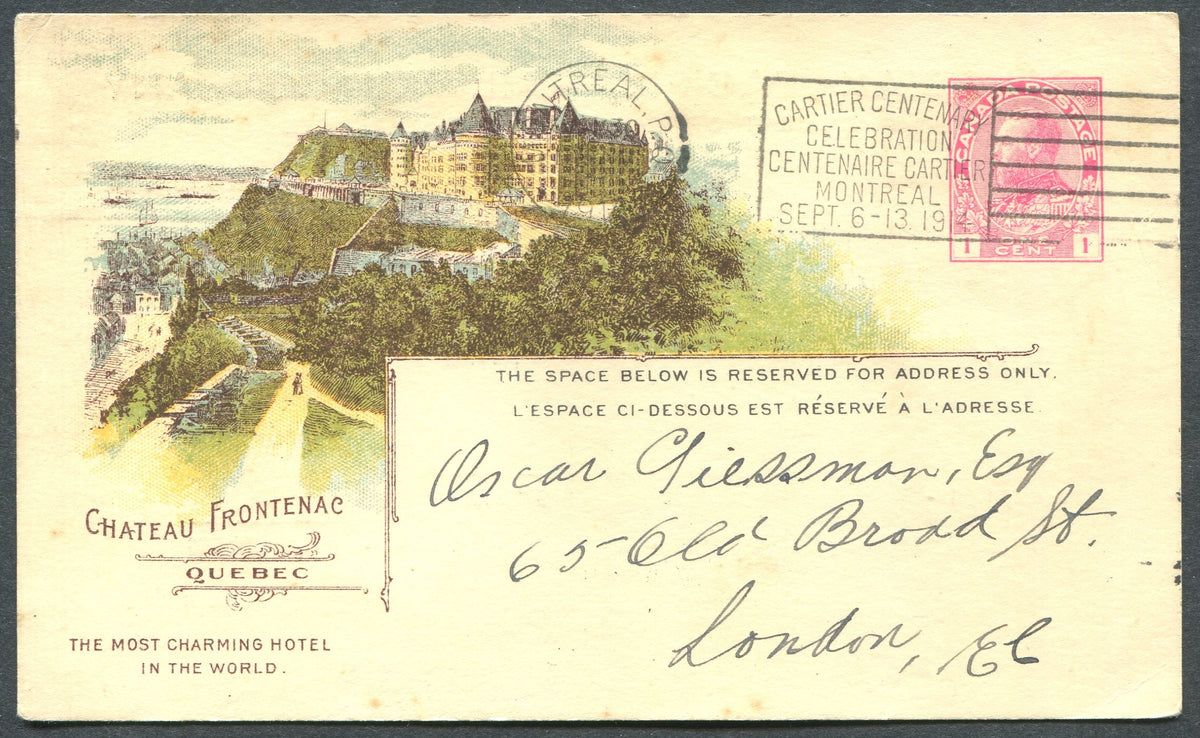 MONTREAL, P.Q.
CARTIER CENTENARY
CELEBRATION
CENTENAIRE CARTIER
MONTREAL
SEPT. 6-13. 19
CANADA POSTAGE
1 CENT 1
THE SPACE BELOW IS RESERVED FOR ADDRESS ONLY.
L'ESPACE CI-DESSOUS EST RÉSERVÉ À L'ADRESSE.
Oscar Giessman, Esq
65 Old Broad St.
London, EC
CHATEAU FRONTENAC
QUEBEC
THE MOST CHARMING HOTEL
IN THE WORLD.